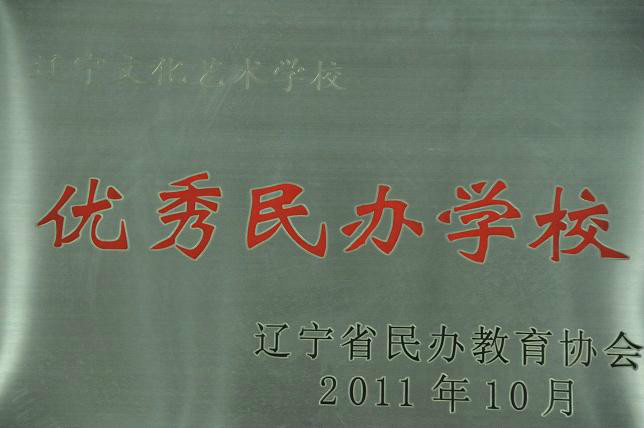 辽宁文化艺术学校
优秀民办学校
辽宁省民办教育协会
2011年10月